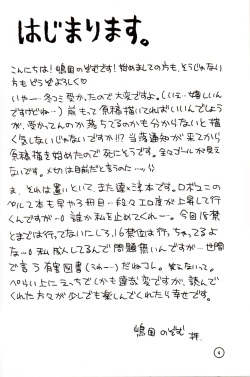 はじまります。
こんにちは!嶋田のぞむです!始めましての方も、そうじゃない
方もどうぞよろしく♡
いやー冬コミ受かったので大変ですよ。(いえ…嬉しいん
ですけどね…)前もって原稿描いてればいいんでしょう
が、受かってんのか落ちてるのかも分からないと描
く気しないじゃないですか!!?当落通知が来てから
原稿描き始めたので死にそうです。全々ゴールが見え
ないです。〆切は目前だと言うのに…
ま、それは置いといて、また違う本です。ロボュニの
ペルて本も早や3冊目…段々エロ度が上昇して行
くんですが…誰か私を止めてくれー。今回18禁
とまでは行ってないにしろ、16禁位は行っちゃてるよ
な…私、成人してるんで問題無いんですが…世間
で言う有害図書(うわー…)だねコレ。笑えないって。
ぺらい上にえっちでしかも違う変ですが、読んで
くれた方々が少しでも楽しんでくれたら幸せです。
嶋田 のぞむ 拝.
4